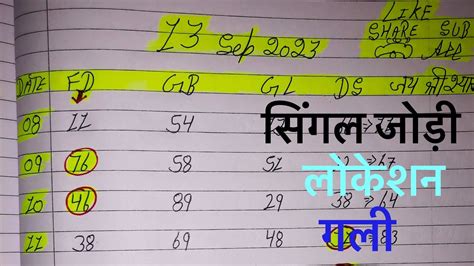 LIKE
13 Sep 2023 SHARE SUB
DATE FD GB GL DS जय श्री श्याम
08 11 54
सिंगल जोड़ी
09 76 58 51 67
लोकेशन
10 46 89 29 38 → 64
गली
11 38 69 48 83